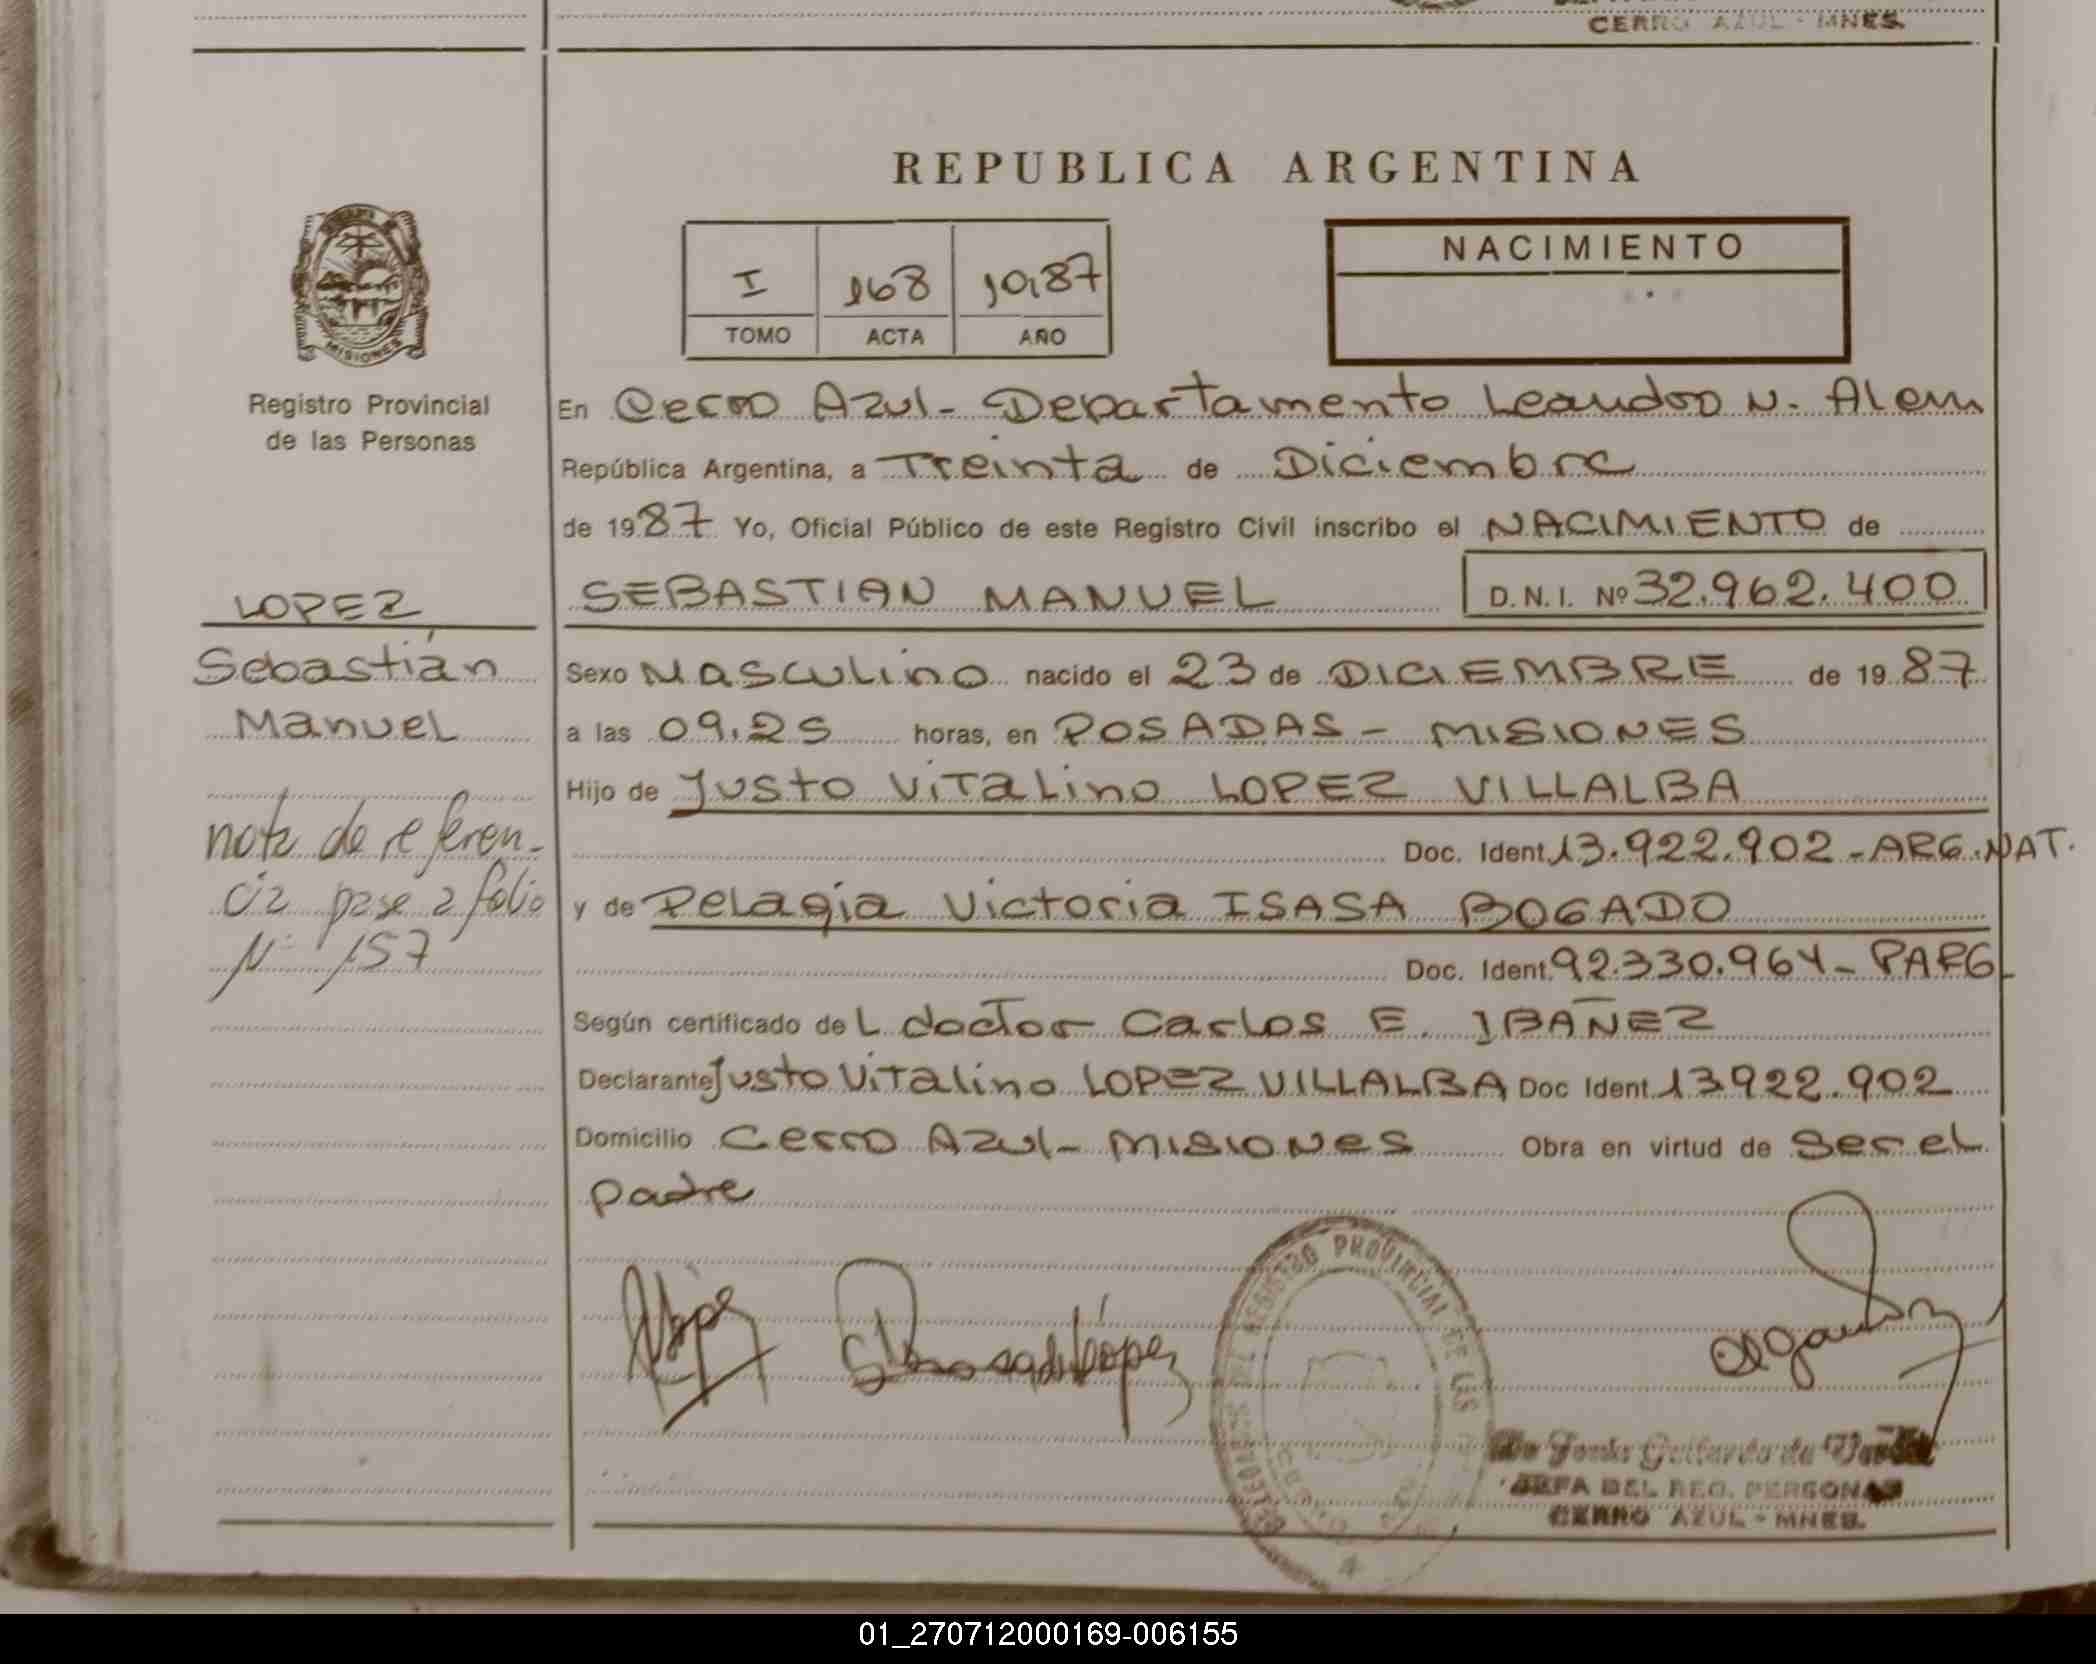 CERRO AZUL - MNES.
REPUBLICA ARGENTINA
I 168 1987
TOMO ACTA AÑO
NACIMIENTO
MISIONES
Registro Provincial
de las Personas
En Cerro Azul - Departamento Leandro N. Alem
República Argentina, a Treinta de Diciembre
de 1987 Yo, Oficial Público de este Registro Civil inscribo el NACIMIENTO de
SEBASTIAN MANUEL D.N.I. Nº 32.962.400
LOPEZ
Sebastián
Manuel
nota de referen-
cia pase a folio
Nº 157
Sexo Masculino nacido el 23 de DICIEMBRE de 1987
a las 09.25 horas, en POSADAS - MISIONES
Hijo de Justo Vitalino LOPEZ VILLALBA
Doc. Ident. 13.922.902 - ARG. NAT.
y de Pelagia Victoria ISASA BOGADO
Doc. Ident. 92.330.964 - PARG
Según certificado del doctor Carlos E. IBAÑEZ
Declarante Justo Vitalino LOPEZ VILLALBA Doc Ident. 13922.902
Domicilio Cerro Azul - Misiones Obra en virtud de Ser el
padre
REGISTRO PROVINCIAL DE LAS
JEFA DEL REG. PERSONAS
CERRO AZUL - MNES.
01_270712000169-006155